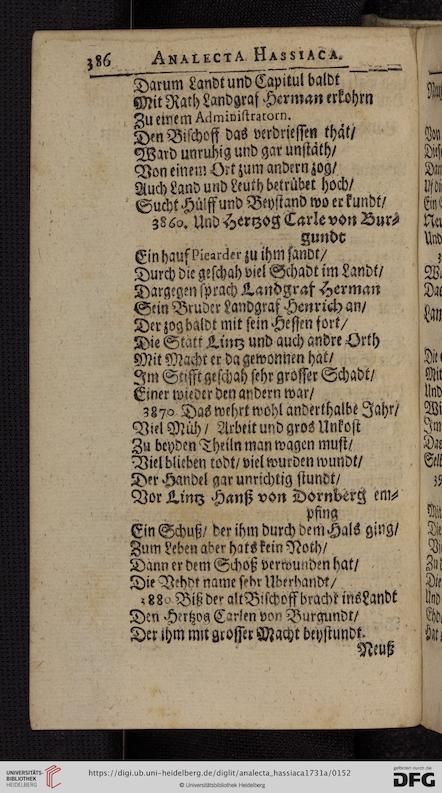 386 ANALECTA HASSIACA.
Darum Landt und Capitul baldt
Mit Rath Landgraf Herman erkohrn
Zu einem Administratorn.
Den Bischoff das verdriessen thät/
Ward unruhig und gar unstäth/
Von einem Ort zum andern zog/
Auch Land und Leuth betrübet hoch/
Sucht Hülff und Beystand wo er kundt/
3860. Und Hertzog Carle von Bur=
gundt
Ein hauf Picarder zu ihm sandt/
Durch die geschah viel Schadt im Landt/
Dargegen sprach Landgraf Herman
Sein Bruder Landgraf Henrich an/
Der zog baldt mit sein Hessen fort/
Die Statt Lintz und auch andre Orth
Mit Macht er da gewonnen hat/
Im Stifft geschah sehr grosser Schadt/
Einer wieder den andern war/
3870. Das wehrt wohl anderthalbe Jahr/
Viel Müh/ Arbeit und gros Unkost
Zu beyden Theiln man wagen must/
Viel blieben todt/ viel wurden wundt/
Der Handel gar unrichtig stundt/
Vor Lintz Hanß von Dornberg em=
pfing
Ein Schuß/ der ihm durch dem Hals ging/
Zum Leben aber hats kein Noth/
Dann er dem Schoß verwunden hat/
Die Vehdt name sehr Uberhandt/
3880. Biß der alt Bischoff bracht ins Landt
Den Hertzog Carlen von Burgundt/
Der ihm mit grosser Macht beystundt.
Neuß
UNIVERSITÄTS-
BIBLIOTHEK
HEIDELBERG
https://digi.ub.uni-heidelberg.de/diglit/analecta_hassiaca1731a/0152
© Universitätsbibliothek Heidelberg
gefördert durch die
DFG